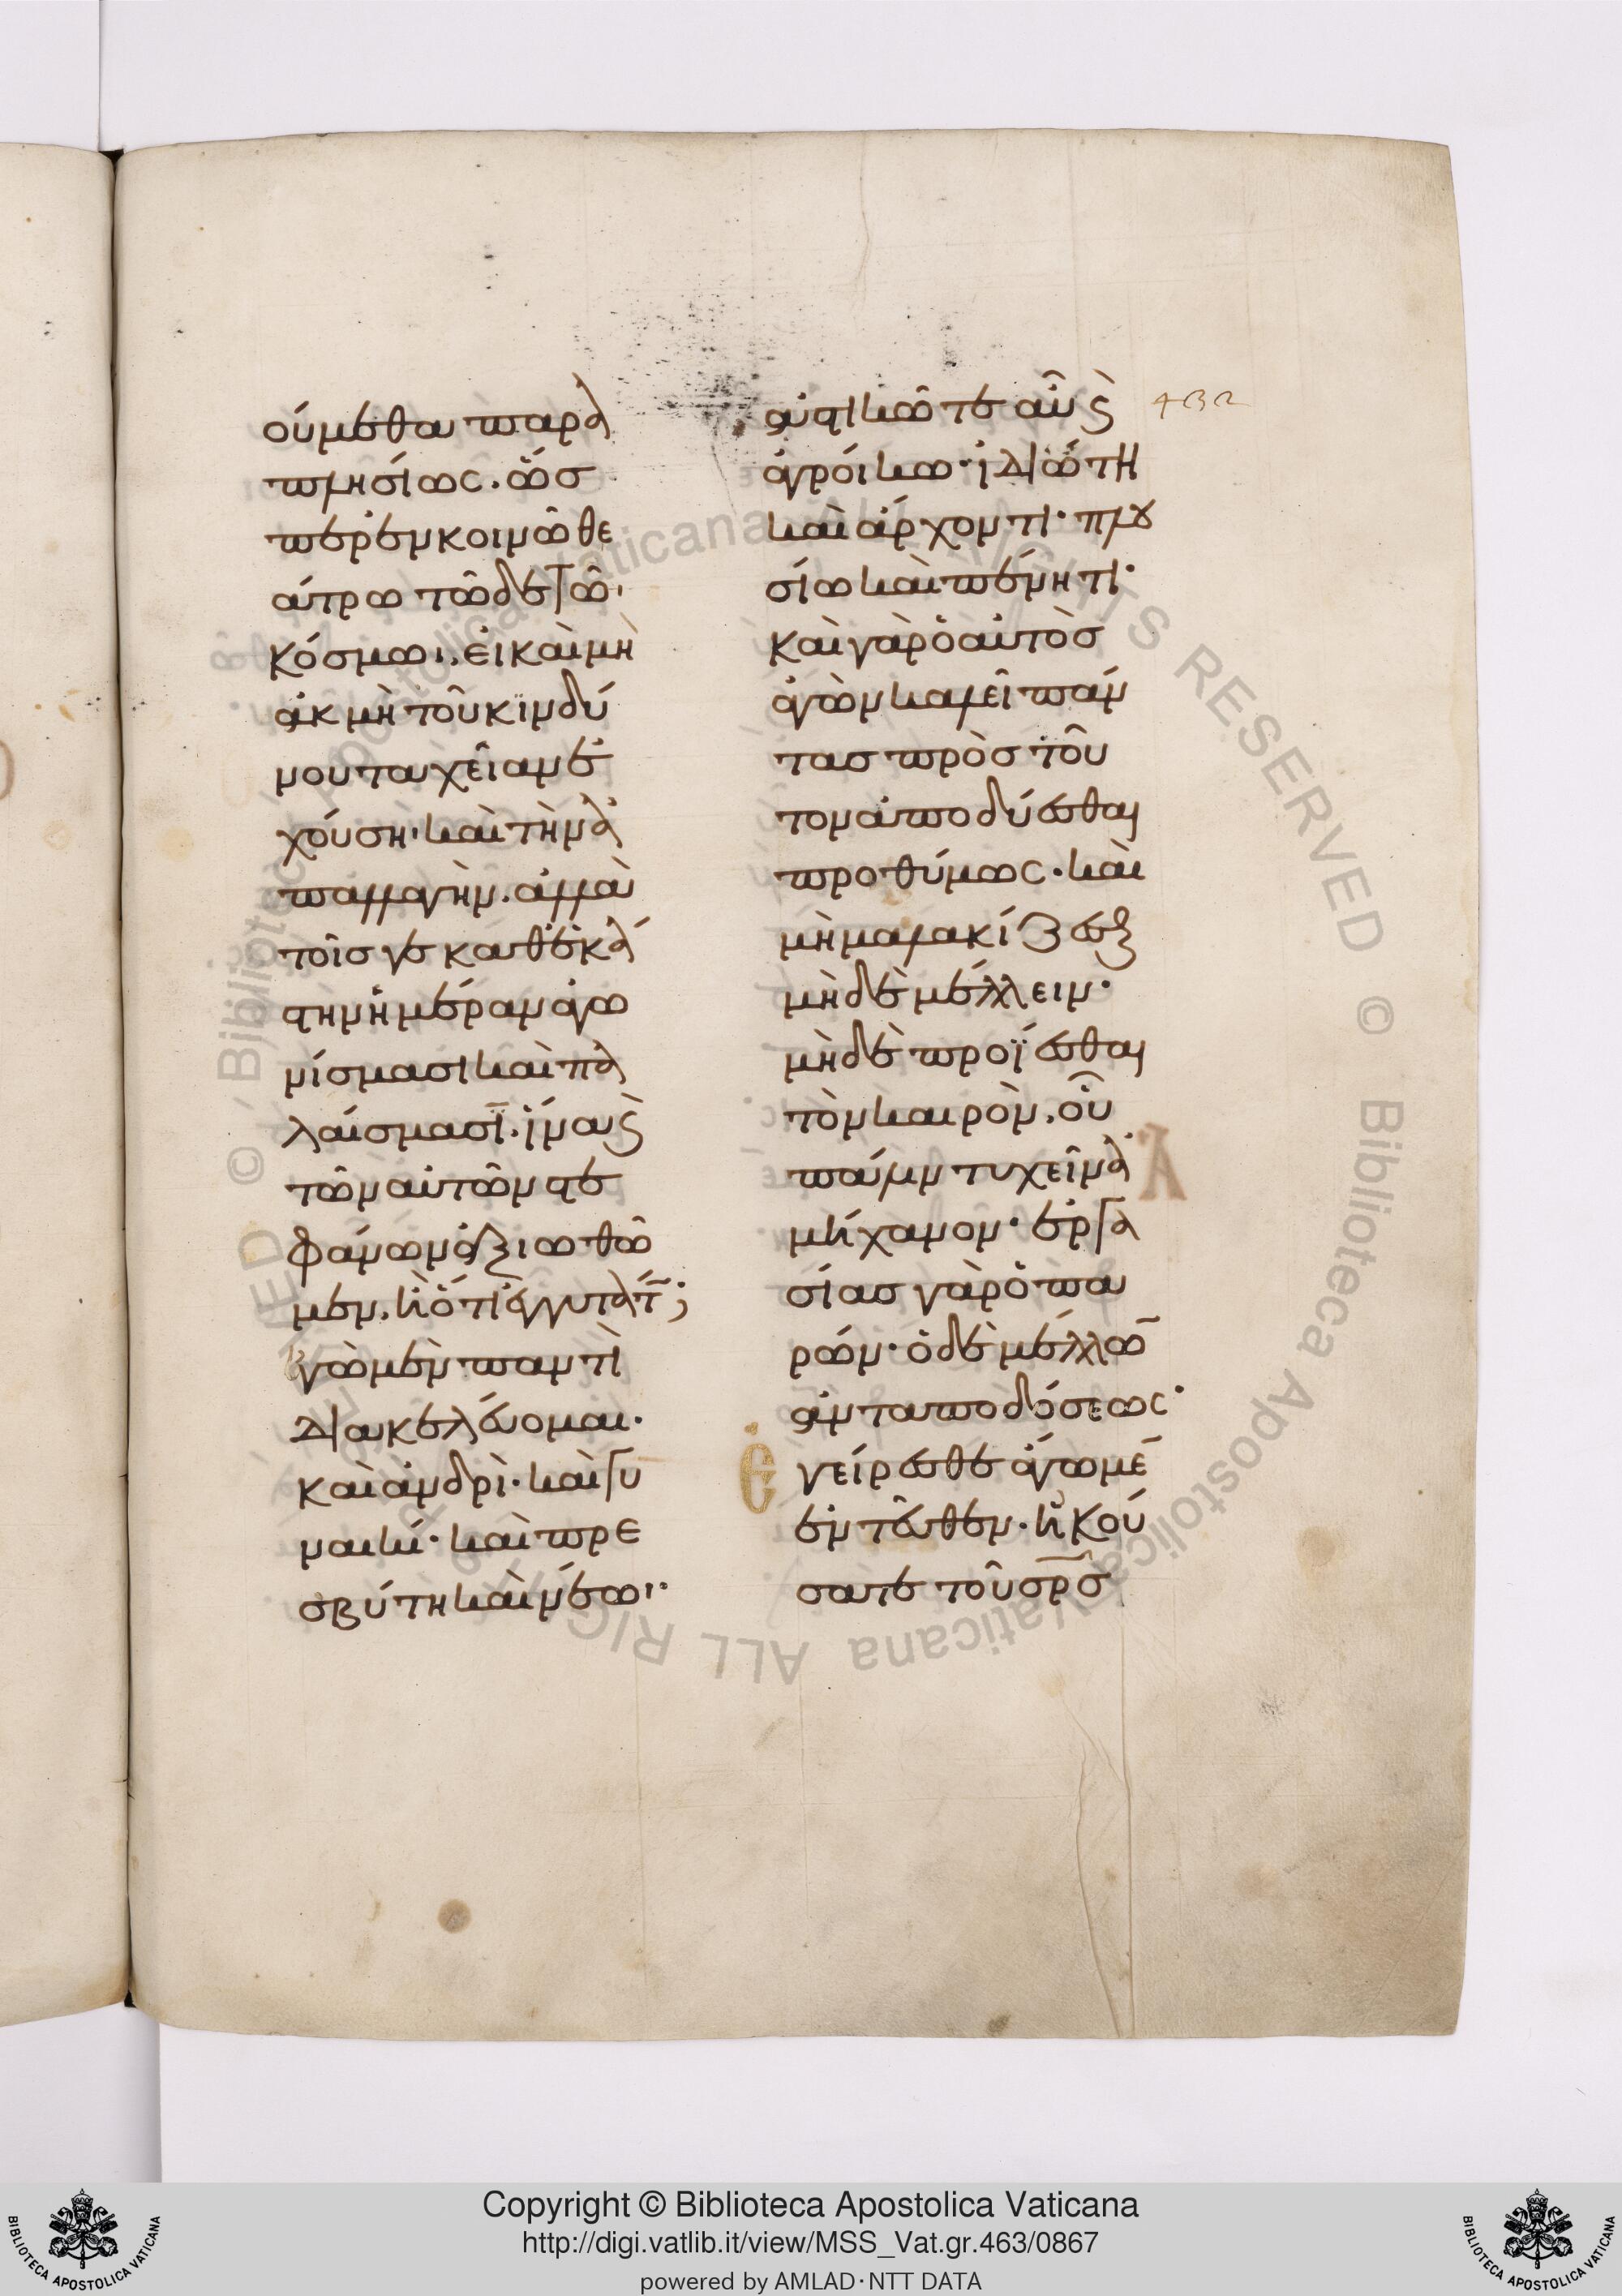 ούμεθα παρα
πλησίως. ὥσ
περ ἐν κοινῶ θε
άτρω τῶδε τῶι
κόσμωι. εἰ καὶ μὴ
ἀκμὴ τοῦ κινδύ
νου ταχεῖαν ἐ
χούση· καὶ τὴν ἀ
παλλαγὴν. ἀλλὰ
τοῖς γε καθ' ἑκά
στην ἡμέραν ἀγω
νίσμασι καὶ πα
λαίσμασϊ. ἵν' αὐς
τῶν αὐτῶν στε
φάνων ἀξιωθῶ
μεν. ἢ ὅτι ἐγγυτάτ;
γὼ μὲν παντὶ
διακελεύομαι·
καὶ ἀνδρὶ· καὶ γυ
ναικί· καὶ πρε
σβύτη καὶ νέωι·
ἀστικῶ τε αὖς
ἀγροίκω· ἰδιώτη
καὶ ἄρχοντι· πλου
σίω καὶ πένητι·
καὶ γὰρ ὁ αὐτὸσ
ἀγὼν καλεῖ πάν
τασ πρὸσ τοῦ
τον ἀποδύεσθαι
προθύμως· καὶ
μὴ μαλακίζεσθ
μὴδὲ μέλλειν·
μὴδὲ προΐεσθαι
τὸν καιρὸν. οὗ
πάλιν τυχεῖν ἀ
μήχανον· ἐργα
σίασ γὰρ ὁ πα
ρών· ὁ δὲ μέλλω
ἀνταποδόσεως·
ἐγείρεσθε ἄγωμε
ἐντεῦθεν· ἠκού
σατε τοῦ σρσ
432
Copyright © Biblioteca Apostolica Vaticana
http://digi.vatlib.it/view/MSS_Vat.gr.463/0867
powered by AMLAD·NTT DATA
BIBLIOTECA APOSTOLICA VATICANA
BIBLIOTECA APOSTOLICA VATICANA